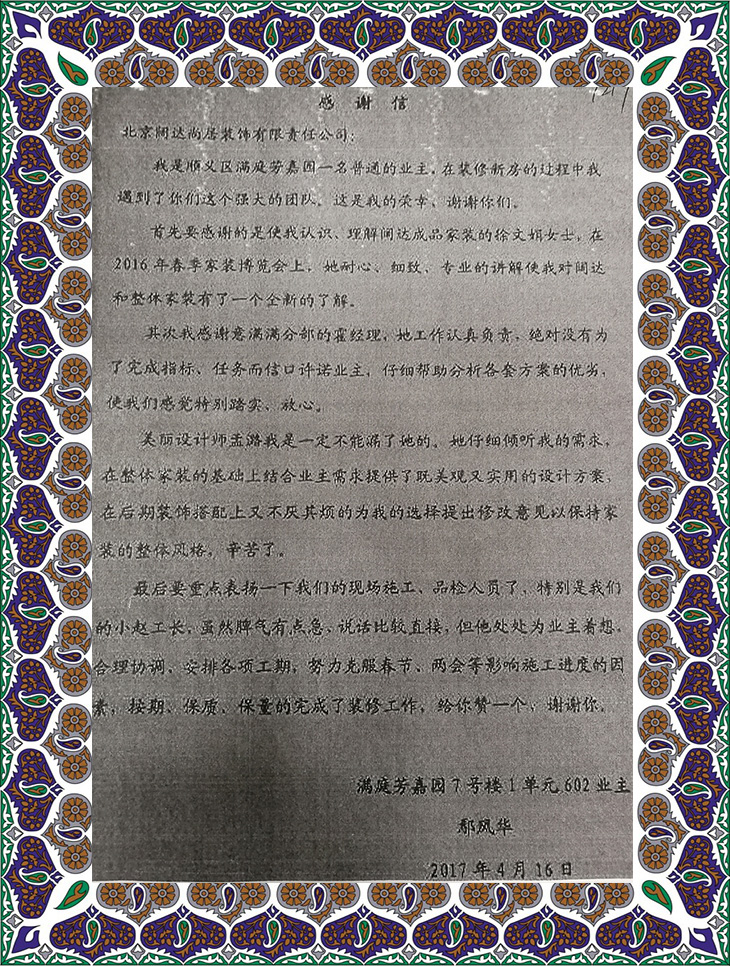 感 谢 信
北京阔达尚居装饰有限责任公司：
我是顺义区满庭芳嘉园一名普通的业主，在装修新房的过程中我
遇到了你们这个强大的团队。这是我的荣幸，谢谢你们。
首先要感谢的是使我认识、理解阔达成品家装的徐文娟女士，在
2016 年春季家装博览会上，她耐心、细致、专业的讲解使我对阔达
和整体家装有了一个全新的了解。
其次我感谢意满满分部的霍经理，她工作认真负责，绝对没有为
了完成指标、任务而信口许诺业主，仔细帮助分析各套方案的优劣，
使我们感觉特别踏实、放心。
美丽设计师孟潞我是一定不能漏了她的。她仔细倾听我的需求，
在整体家装的基础上结合业主需求提供了既美观又实用的设计方案，
在后期装饰搭配上又不厌其烦的为我的选择提出修改意见以保持家
装的整体风格，辛苦了。
最后要重点表扬一下我们的现场施工、品检人员了，特别是我们
的小赵工长，虽然脾气有点急、说话比较直接，但他处处为业主着想，
合理协调、安排各项工期，努力克服春节、两会等影响施工进度的因
素，按期、保质、保量的完成了装修工作，给你赞一个，谢谢你。
满庭芳嘉园 7 号楼 1 单元 602 业主
鄢凤华
2017 年 4 月 16 日